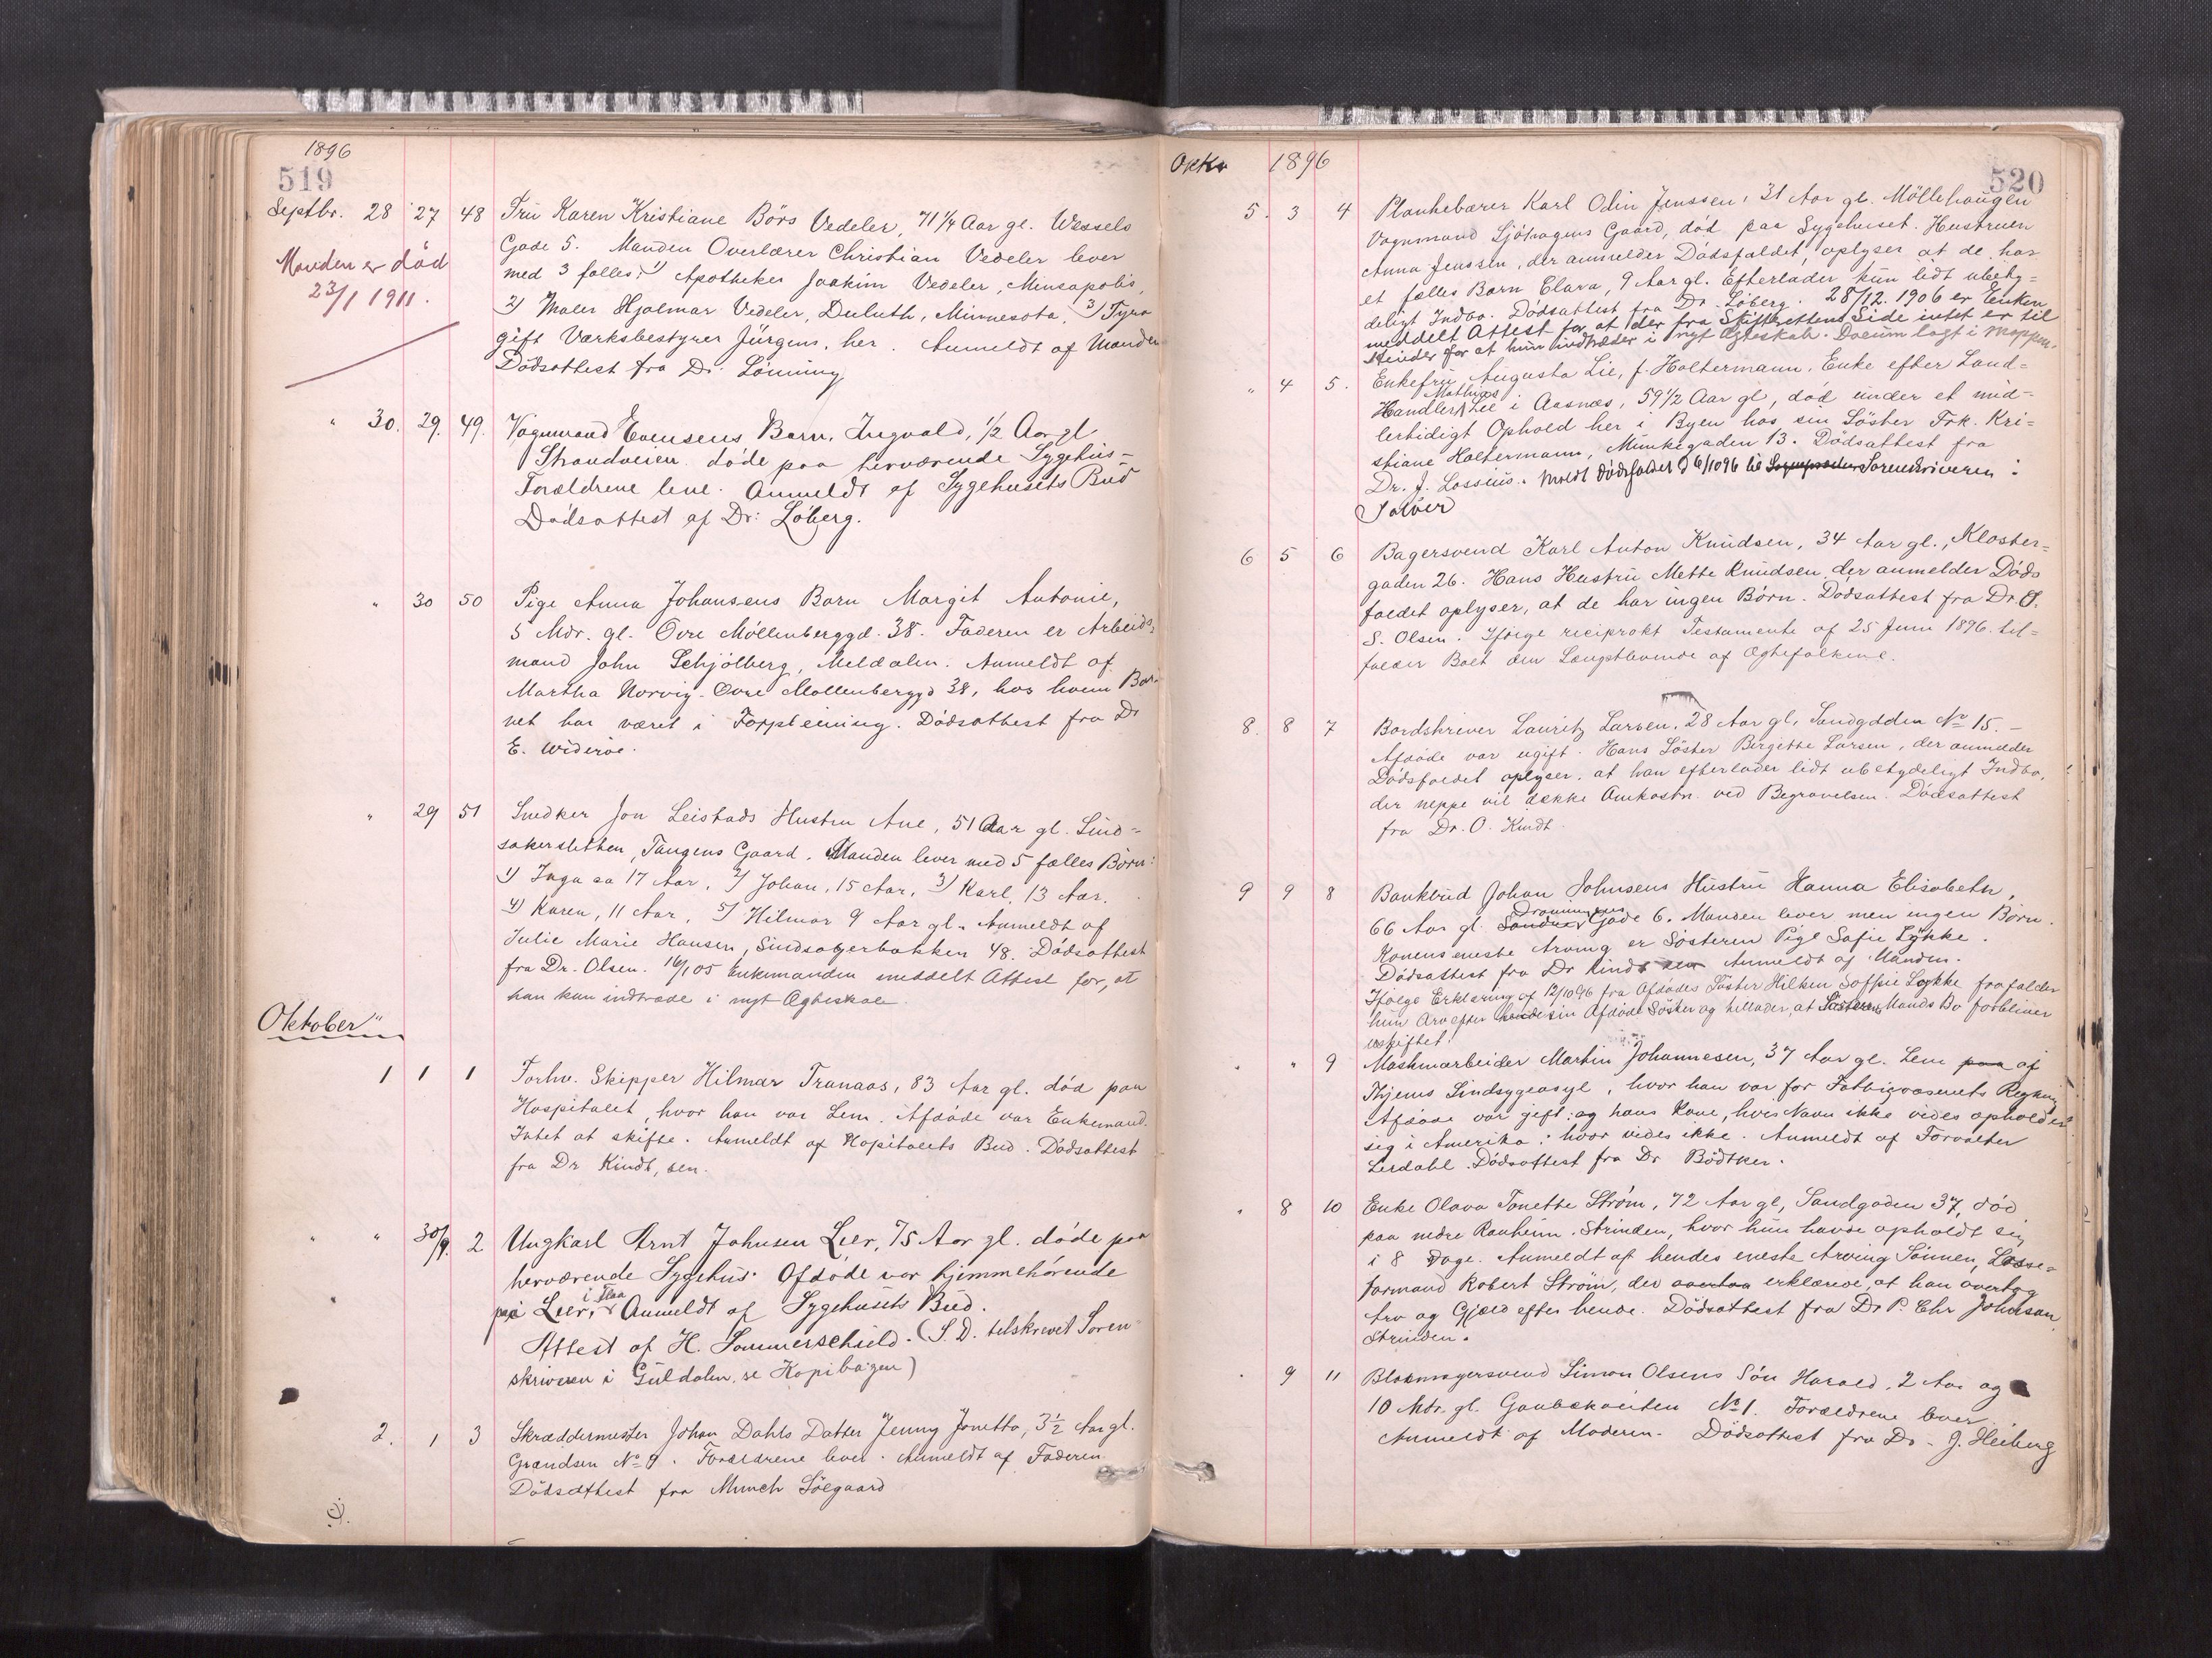 1896
519
Septbr. 28 27 48 Fru Karen Kristiane Börs Vedeler, 71 1/4 Aar gl. Wessels
Gade 5. Manden Overlærer Christian Vedeler lever
Manden er død
23/1 1911.
med 3 fælles: 1) Apotheker Joakim Vedeler, Mineapolis,
2) Maler Hjalmar Vedeler, Duluth, Minnesota. 3) Tyra
gift Værksbestyrer Jürgens, her. Anmeldt af Manden
Dödsattest fra Dr. Lönning
" 30. 29. 49. Vognmand Evensens Barn, Ingvald, 1/2 Aar gl
Strandveien døde paa herværende Sygehus-
Forældrene leve. Anmeldt af Sygehusets Bud
Dødsattest af Dr: Løberg.
" 30 50 Pige Anna Johansens Barn Margit Antonie,
5 Mdr. gl. Øvre Möllenberggd. 38. Faderen er Arbeids-
mand John Schjölberg, Meldalen. Anmeldt af
Martha Norvig. Øvre Mollenberggd 38, hos hvem Bar-
net har været i Forpleining. Dödsattest fra Dr
E. Widerøe.
" 29 51 Snedker Jon Leistads Hustru Ane, 51 Aar gl. Sind-
sakersletten, Tangens Gaard. Manden lever med 5 fælles Børn:
1) Inga ca 17 Aar. 2) Johan, 15 Aar, 3) Karl, 13 Aar.
4) Karen, 11 Aar, 5) Hilmar 9 Aar gl. Anmeldt af
Julie Marie Hansen, Sindsagerbakken 48. Dödsattest
fra Dr. Olsen. 16/1 05 Enkemanden meddelt Attest for, at
han kan indtræde i nyt Ægteskab.
Oktober
1 1 1 Forhv. Skipper Hilmar Tranaas, 83 Aar gl. död paa
Hospitalet, hvor han var Lem. Afdöde var Enkemand.
Intet at skifte. Anmeldt af Hopitalets Bud. Dödsattest
fra Dr Kindt, sen.
" " 30/9. 2 Ungkarl Arnt Johnsen Leer, 75 Aar gl. døde paa
herværende Sygehus. Afdøde var hjemmehørende
paa Leer, i Flaa Anmeldt af Sygehusets Bud.
Attest af H. Sommerschield. (S. D. tilskrevet Soren
skriveren i Guldalen, se Kopibogen)
2. 1 3 Skræddermester Johan Dahls Datter Jenny Jonetta, 3 1/2 Aar gl.
Grændsen No 9. Forældrene lever. Anmeldt af Faderen
Dödsattest fra Munch Söegaard
Oktbr 1896
520
5. 3 4 Plankebærer Karl Odin Jenssen, 31 Aar gl. Möllehaugen
Vognmand Sjöhagens Gaard, död paa Sygehuset. Hustruen
Anna Jenssen, der anmelder Dödsfaldet, oplyser at de har
et fælles Barn Clara, 9 Aar gl. Efterlader kun lidt ubety-
deligt Indbo. Dødsattest fra Dr. Løberg. 28/12. 1906 er Enken
meddelt Attest for at der fra Skifterettens Side intet er til
Hinder for at hun indtræder i nyt Ægteskab. Docum lagt i Mappen.
" 4 5. Enkefru Augusta Lie, f. Holtermann, Enke efter Land-
Handler Mathias Lie i Aasnæs, 59 1/2 Aar gl, död under et mid-
lertidigt Ophold her i Byen hos sin Söster Frk. Kri-
stiane Holtermann, Munkegaden 13. Dödsattest fra
Dr. J. Lossius. Meldt Dødsfaldet d 6/10 96 til Sorenskriveren i
Solöer
6 5 6 Bagersvend Karl Anton Knudsen, 34 Aar gl., Kloster-
gaden 26. Hans Hustru Mette Knudsen der anmelder Døds
faldet oplyser, at de har ingen Børn. Dødsattest fra Dr O.
S. Olsen. Ifølge reciprokt Testamente af 25 Juni 1896 til-
falder Boet den Længstlevende af Ægtefolkene.
8. 8 7 Bordskriver Lauritz Larsen, 28 Aar gl, Sandgadden No 15. -
Afdøde var ugift. Hans Söster Birgitte Larsen, der anmelder
Dödsfaldet oplyser, at han efterlader lidt ubetydeligt Indbo,
der neppe vil dække Omkostn. ved Begravelsen. Dödsattest
fra Dr. O. Kindt.
9 9 8 Bankbud Johan Johnsens Hustru Hanna Elisabeth,
66 Aar gl. Söndre Dronningens Gade 6. Manden lever men ingen Børn.
Konens eneste Arving er Søsteren Pige Sofie Lykke.
Dødsattest fra Dr Kindt sen Anmeldt af Manden.
Ifølge Erklæring af 12/10 96 fra Afdødes Søster Hilken Soffie Løkke frafalder
hun Arv efter hende sin Afdøde Søster og tillader, at Søsterens Mands Bo forbliver
uskiftet.
" " 9 Maskinarbeider Martin Johannesen, 37 Aar gl. Lem paa af
Thjems Sindsygeasyl, hvor han var for Fattigvæsenets Regning
Afdøde var gift, og hans Kone, hvis Navn ikke vides opholder
sig i Amerika; hvor vides ikke. Anmeldt af Forvalter
Lerdahl. Dödsattest fra Dr Bödtker.
" 8 10 Enke Olava Tonette Ström, 72 Aar gl, Sandgaden 37, død
paa nedre Ranheim, Strinden, hvor hun havde opholdt sig
i 8 Dage. Anmeldt af hendes eneste Arving Sönnen, Losse-
formand Robert Ström, der overtaa erklærede, at han overtog
Arv og Gjæld efter hende. Dödsattest fra Dr P. Chr Johnsen,
Strinden.
" 9 11 Blokmagersvend Simon Olsens Sön Harald, 2 Aar og
10 Mdr. gl. Gaubækveiten No 1. Forældrene lever
Anmeldt af Moderen. Dödsattest fra Dr. J. Heiberg